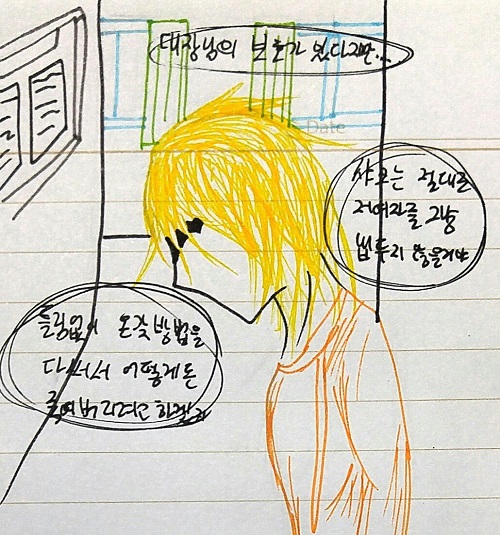 대장님의 보호가 있다지만...
Date
샤크는 절대로
저여자를 그냥
법두지 않을거야
틀림없이 온갖 방법을
다써서 어떻게든
죽여버리려고 하겠지